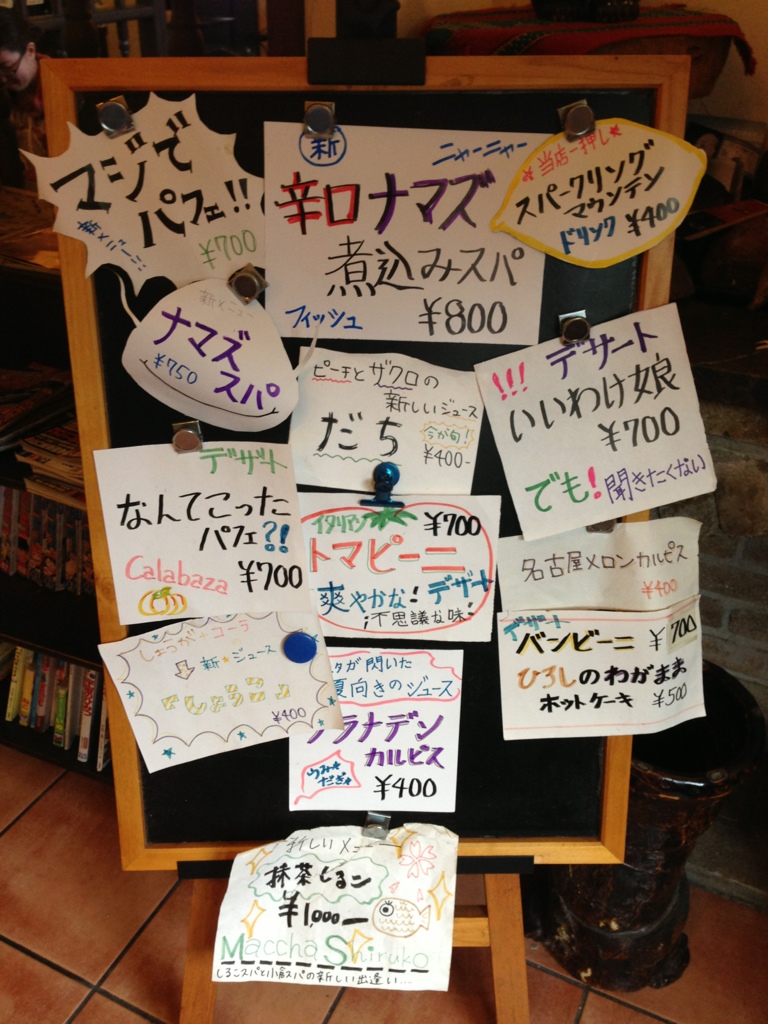 マジで
パフェ!!
新メニュー
¥700
新
ニャーニャー
辛口ナマズ
煮込みスパ
フィッシュ
¥800
当店一押し
スパークリング
マウンテン
ドリンク ¥400
新メニュー
ナマズ
¥750
スパ
ピーチとザクロの
新しいジュース
だち
今が旬!
¥400-
!!! デザート
いいわけ娘
¥700
でも! 聞きたくない
デザート
なんてこった
パフェ?!
Calabaza
¥700
イタリアン
¥700
トマピーニ
爽やかな! デザート
不思議な味!
名古屋メロンカルピス
¥400
デザート
バンビーニ ¥700
ひろしのわがまま
ホットケーキ ¥500
しょうが+コーラ
新★ジュース
¥400
タが閃いた
夏向きのジュース
ラナデン
カルピス
¥400
新しいメニュー
抹茶しるこ
¥1,000-
Maccha Shiruko
しるこスパと小倉スパの新しい出逢い...